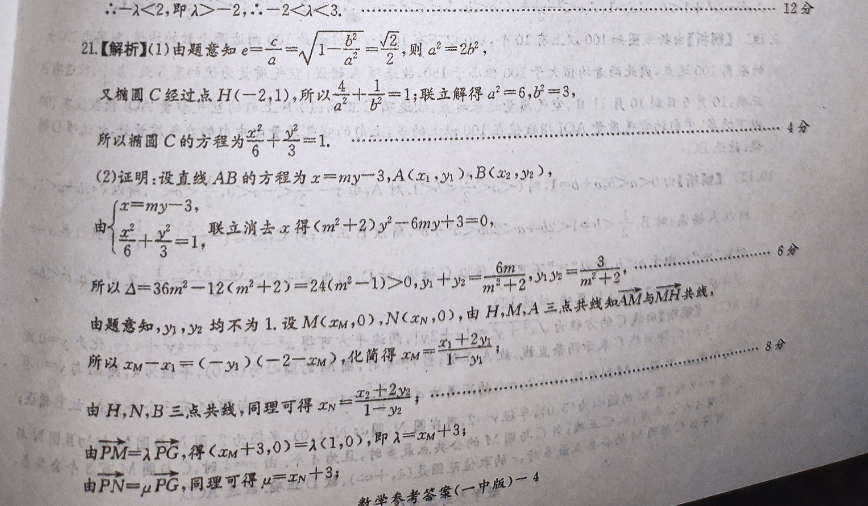 ∴-λ<2,即 λ>-2,∴-2<λ<3. 12分
21.【解析】(1)由题意知 e=c/a=√(1-b²/a²)=√2/2,则 a²=2b²,
又椭圆 C 经过点 H(-2,1),所以 4/a²+1/b²=1;联立解得 a²=6,b²=3,
所以椭圆 C 的方程为 x²/6+y²/3=1. 4分
(2)证明:设直线 AB 的方程为 x=my-3,A(x₁,y₁),B(x₂,y₂),
由{x=my-3, x²/6+y²/3=1,联立消去 x 得(m²+2)y²-6my+3=0,
所以 Δ=36m²-12(m²+2)=24(m²-1)>0,y₁+y₂=6m/(m²+2),y₁y₂=3/(m²+2), 6分
由题意知,y₁,y₂ 均不为 1.设 M(x_M,0),N(x_N,0),由 H,M,A 三点共线知AM→与MH→共线,
所以 x_M-x₁=(-y₁)(-2-x_M),化简得 x_M=(x₁+2y₁)/(1-y₁);
由 H,N,B 三点共线,同理可得 x_N=(x₂+2y₂)/(1-y₂); 8分
由PM→=λPG→,得(x_M+3,0)=λ(1,0),即 λ=x_M+3;
由PN→=μPG→,同理可得 μ=x_N+3;
数学参考答案(一中版)-4